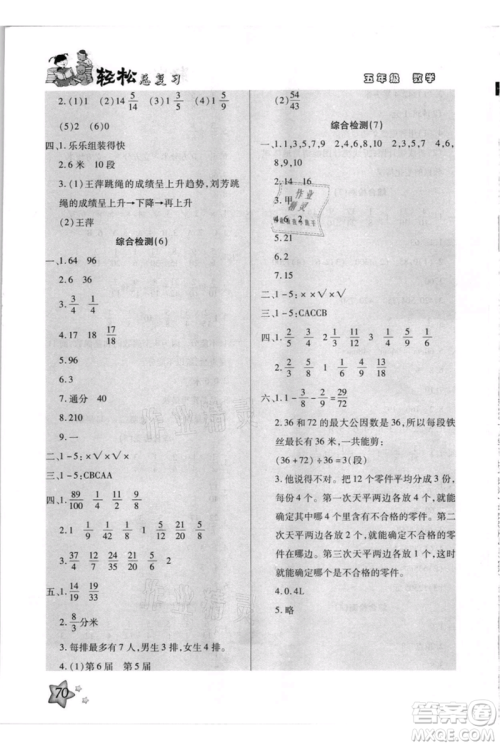 轻松总复习
五年级 数学
2.(1)1 14 5/14 (2)54/43
(5)2 (6)2
四、1.乐乐组装得快
2.6 米 10 段
3.(1)王萍跳绳的成绩呈上升趋势,刘芳跳
绳的成绩呈上升→下降→再上升
(2)王萍
综合检测(6)
一、1.64 96
3.3/4 1/4
4.17 18 17/18
5.96
7.通分 40
8.210
9.一
二、1-5:××√×√
三、1-5:CBCAA
四、1.89/100 1/4 1/2 12/5 5/18 21/16
2.2/3 3/4 22/15 7/24
五、1.14/19 19/33
2.8/3分米
3.每排最多有7人,男生3排,女生4排
4.(1)第6届 第5届
70
综合检测(7)
一、1.1,3,5,7,9 2,3,5,7 2,4,6,8,10
4,6,8,9,10
2.14 16
3.甲
4.6 2
5.21
7.0.15
二、1-5:×√××√
三、1-5:CACCB
四、1.2/5 3/5 1/6 5/6 1/2 1/2
2.1 1/4 2/9 1/5
六、1.1-3/8-2/9=29/72
2.36和72的最大公因数是36,所以每段铁
丝最多长36米,一共能剪:
(36+72)÷36=3(段)
3.他说得不对。把12个零件平均分成3份,
每份4个。第一次天平两边各放4个,就
能确定哪4个里面有不合格的零件。第二
次天平两边各放2个,能确定哪2个里面
有不合格的零件。第三次天平两边各放1
个,能确定哪个是不合格的零件。
4.0.4L
5.略
作业
精灵